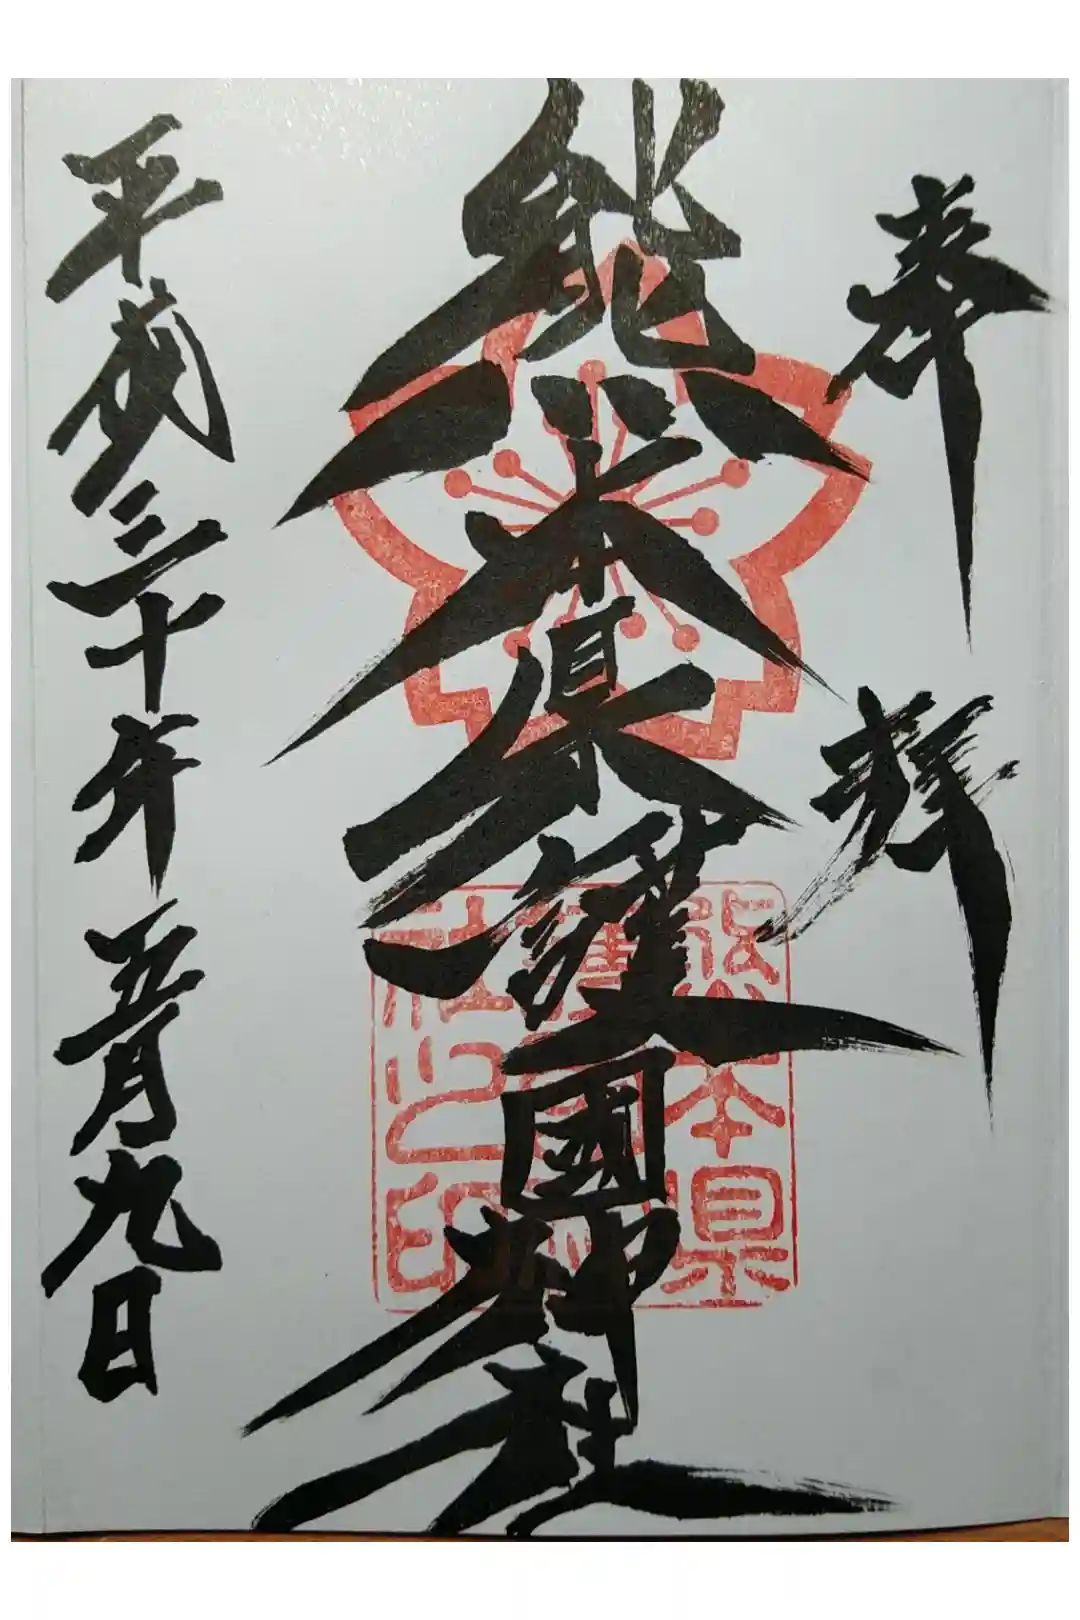 奉拝
熊本県護國神社
熊本県
護國神
社之印
平成三十年五月九日